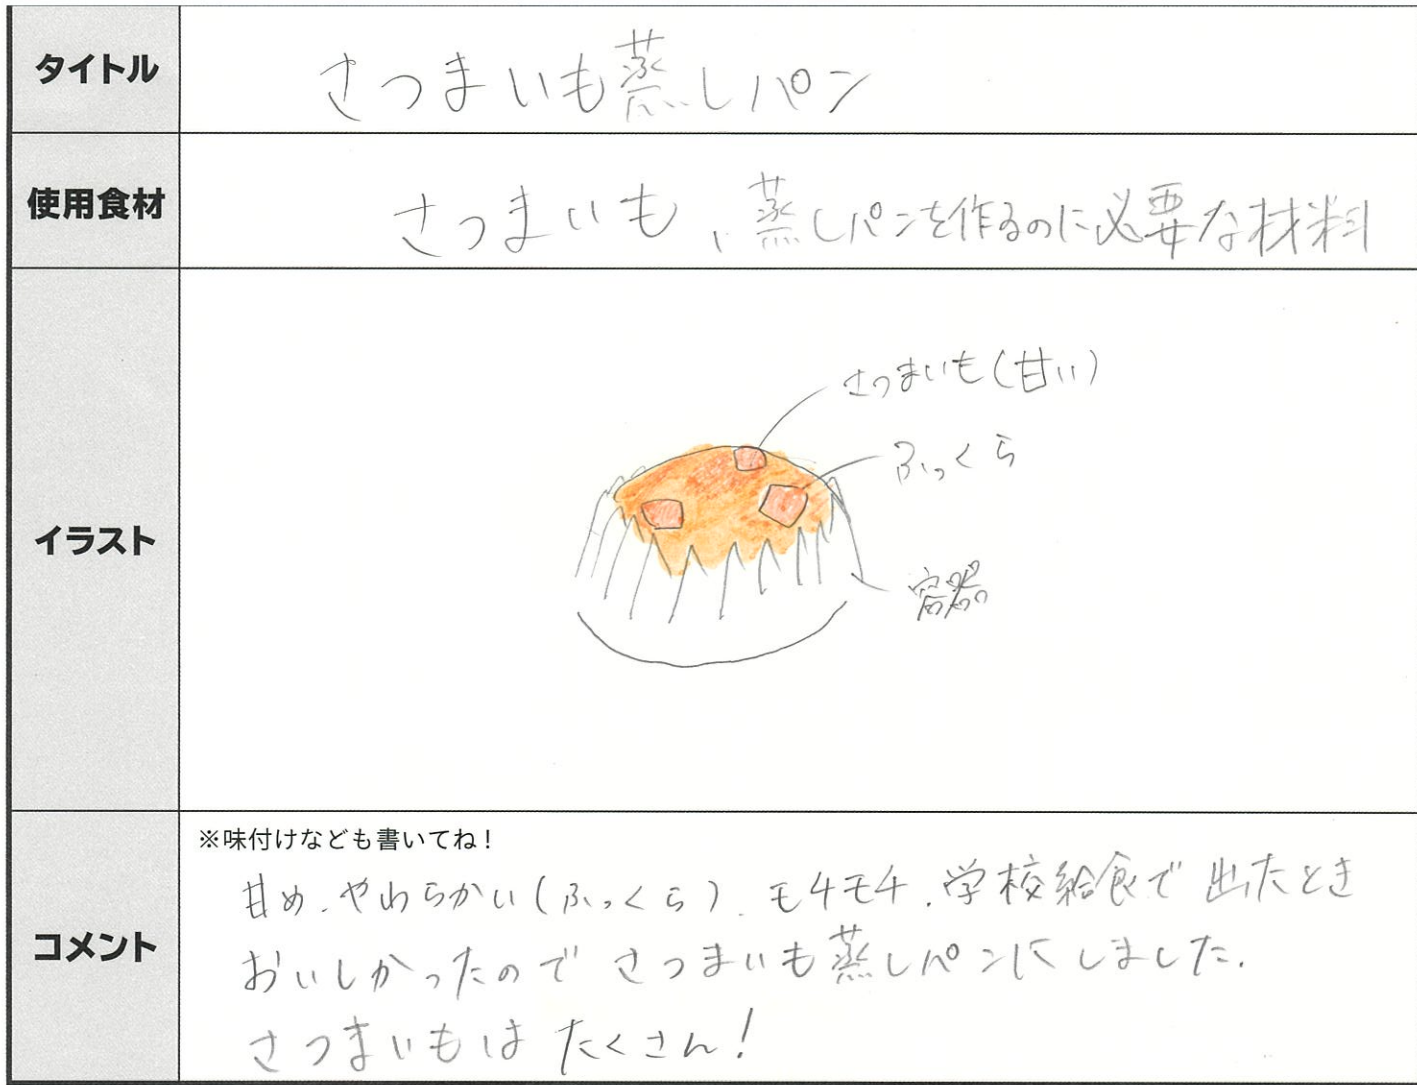 タイトル
さつまいも蒸しパン
使用食材
さつまいも、蒸しパンを作るのに必要な材料
イラスト
さつまいも(甘い)
ふっくら
容器
コメント
※味付けなども書いてね!
甘め、やわらかい(ふっくら)、モチモチ、学校給食で出たとき
おいしかったのでさつまいも蒸しパンにしました。
さつまいもはたくさん!